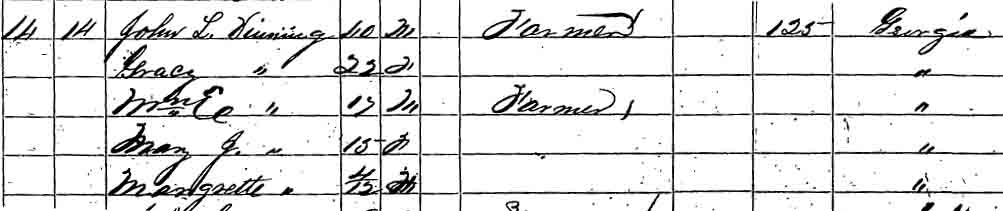 14 14 John L. Dinning 40 M Farmer 125 Georgia
Gracy " 22 F "
Wm E " 17 M Farmer "
Mary J. " 15 F "
Margrette " 4/12 "